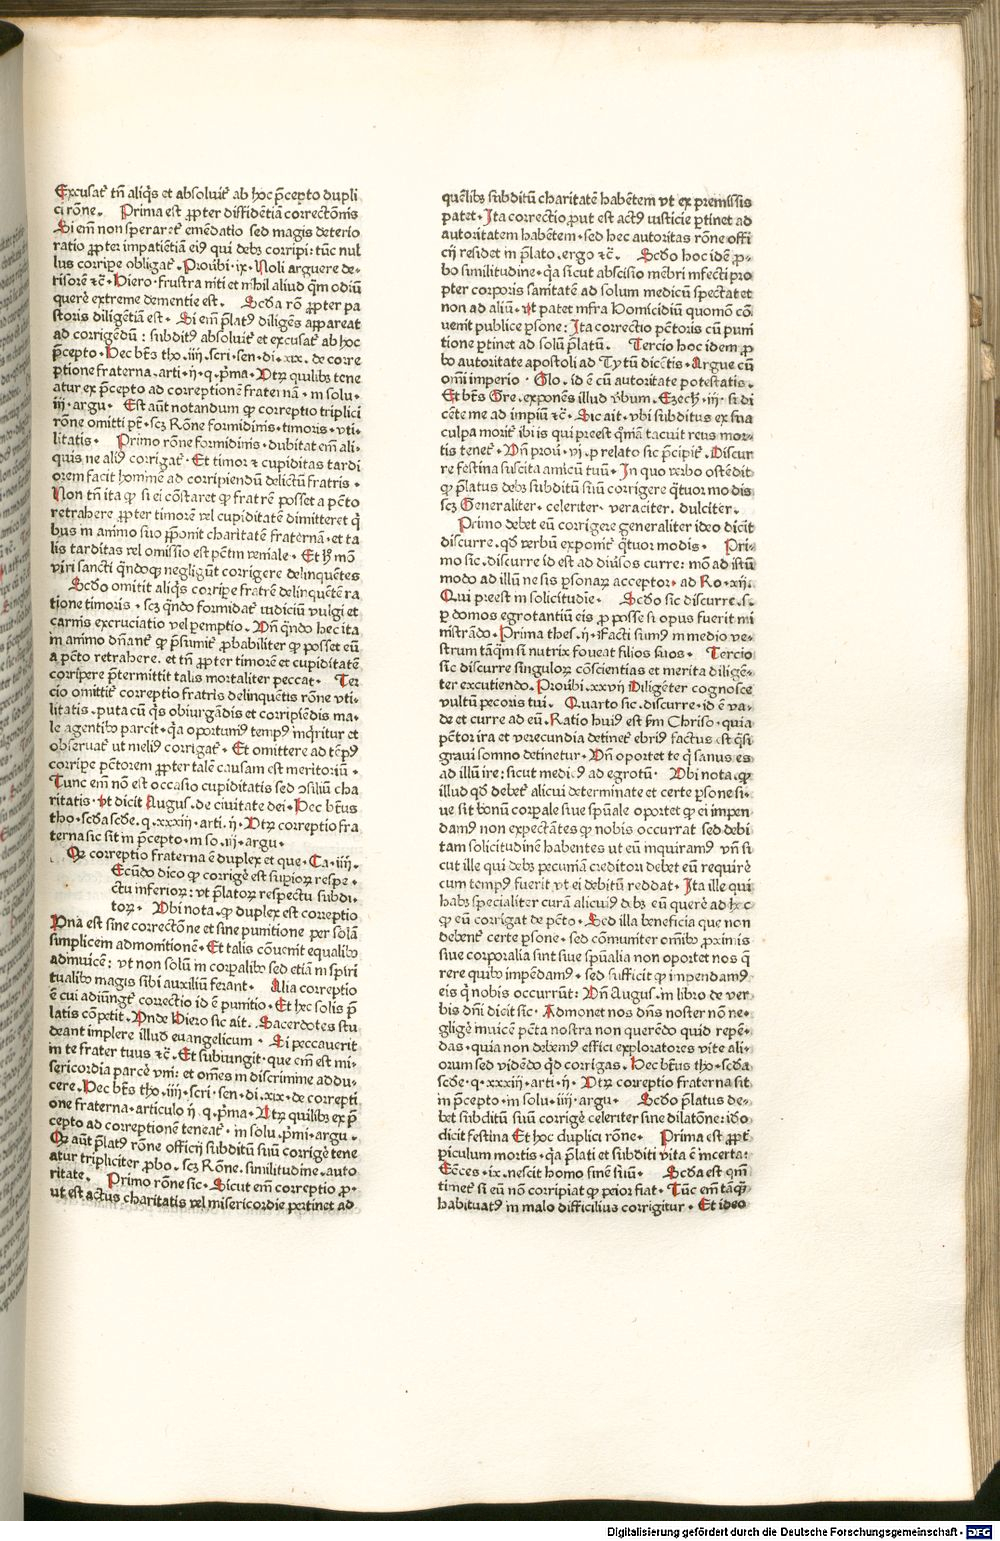 Excusat̃ tñ aliq̃s et absoluit̃ ab hoc p̃cepto dupli
ci rõne. Prima est ꝓpter diffidentiã correctõnis
Si em̃ non sperar̃t̃ emẽdatio sed magis deterio
ratio ꝓpter impatiẽtiã eiꝰ qui debꝫ corripi: tũc nul
lus corripe obligat̃. Prouerbi. ix. Noli arguere de-
risorẽ ⁊c̃. Hiero. frustra niti et nihil aliud qm̃ odiũ
querẽ extreme dementie est. Scd̃a rõ ꝓpter pa
storis diligẽtiã est. Si em̃ p̃latꝰ diligẽs appareat
ad corrigẽdũ: subditꝰ absoluit̃ et excusat̃ ab hoc
p̃cepto. Hec bt̃s tho. iiii. scri. sen. di. xix. de corre
ptione fraterna. arti. ij. q. p̃ma. Vtꝝ quilibꝫ tene
atur ex p̃cepto ad correptionẽ fraternã. in solu.
iij. argu. Est aũt notandum ꝙ correptio triplici
rõne omitti pt̃. scꝫ Rõne formidinis. timoris. vti-
litatis. Primo rõne formidinis. dubitat em̃ ali-
quis ne aliꝰ corrigat̃. Et timor ⁊ cupiditas tardi
orem facit hominẽ ad corripiendũ delictũ fratris.
Non tñ ita ꝙ si ei cõstaret ꝙ fratrẽ posset a pctõ
retrahere ꝓpter timorẽ vel cupiditatẽ dimitteret q̃
bus in animo suo ꝓponit charitatẽ fraternã. et ta
lis tarditas vel omissio est pctm̃ veniale. Et hͦ mõ
viri sancti qñdoqꝫ negligũt corrigere delinquẽtes
Scd̃o omitit aliq̃s corripe fratrẽ delinquẽtẽ ra
tione timoris. scꝫ qñdo formidat̃ iudiciũ vulgi et
carnis excruciatio vel ꝑemptio. Dñ qñdo hec ita
in animo dñant̃ ꝙ p̃sumit̃ ꝓbabiliter ꝙ posset eũ
a pctõ retrahere. et tñ ꝓpter timorẽ et cupiditatẽ
corripere p̃termittit talis mortaliter peccat. Ter
cio omittit̃ correptio fratris delinquẽtis rõne vti-
litatis. puta cũ q̃s obiurgãdis et corripiẽdis ma-
le agentibꝰ parcit. q̃a oportunũ tempꝰ inq̃ritur et
obseruat̃ vt meliꝰ corrigat̃. Et omittere ad tẽpꝰ
corripe pctõrem ꝓpter talẽ causam est meritoriũ.
Tunc em̃ nõ est occasio cupiditatis sed ↄsiliũ cha
ritatis. vt dicit Augus. de ciuitate dei. Hec bt̃us
tho. scd̃a scd̃e. q. xxxiij. arti. ij. Vtꝝ correptio fra
terna sic sit in p̃cepto. in so. iij. argu.
Qꝫ correptio fraterna ẽ duplex et que. Ca. iiii.
Ecũdo dico ꝙ corrigẽ est supioꝝ respe.
ctu inferioꝝ: vt p̃latoꝝ respectu subdi-
toꝝ. Vbi nota. ꝙ duplex est correptio
Vna est sine correctõne et sine punitione per solã
simplicem admonitionẽ. Et talis cõuenit equalibꝰ
adinuicẽ: vt non solũ in corpalibꝰ sed etiã in spiri
tualibꝰ magis sibi auxiliũ ferant. Alia correptio
ẽ cui adiũngt̃ correctio id ẽ punitio. Et hec solis p̃
latis cõpetit. Vnde Hiero sic ait. Sacerdotes stu
deant implere illud euangelicum. Si peccauerit
in te frater tuus ⁊c̃. Et subiungit. que em̃ est mi-
sericordia parcẽ vni: et om̃es in discrimine addu-
cere. Hec bt̃s tho. iiii. scri. sen. di. xix. de correpti
one fraterna. articulo ij. q. p̃ma. Vtꝝ quilibꝫ ex p̃
cepto ad correptionẽ teneat̃. in solu. p̃mi. argu.
Qꝫ aũt p̃latꝰ rõne officij subditũ suũ corrigẽ tene
atur tripliciter ꝓbo. scꝫ Rõne. similitudine. auto
ritate. Primo rõne sic. Sicut em̃ correptio ꝓ.
ut est actus charitatis vel misericordie pertinet ad
quẽlibꝫ subditũ charitatẽ habẽtem vt ex premissis
patet. Ita correctio ꝓut est actꝰ iusticie ꝑtinet ad
autoritatem habẽtem. sed hec autoritas rõne offi
cij residet in p̃lato. ergo ⁊c̃. Scd̃o hoc idẽ ꝓ-
bo similitudine. q̃a sicut abscisio mẽbri infecti pro
pter corporis sanitatẽ ad solum medicũ spectat et
non ad aliũ. vt patet infra Homicidiũ quomõ cõ
uenit publice ꝑsone: Ita correctio pctõris cũ puni
tione ꝑtinet ad solũ p̃latũ. Tercio hoc idem ꝓ
bo autoritate apostoli ad Tytũ dicẽtis. Argue cũ
om̃i imperio. Glo. id ẽ cũ autoritate potestatis.
Et bt̃s Gre. exponẽs illud ṽbum. Ezech. iij. si di
cẽte me ad impiũ ⁊c̃. Sic ait. vbi subditus ex sua
culpa morit̃ ibi is qui preest qm̃ã tacuit reus mor-
tis tenet̃. Dñ proui. vi. p relato sic p̃cipit̃. Discur
re festina suscita amicũ tuũ. In quo verbo ostẽdit̃
ꝙ p̃latus debꝫ subditũ suũ corrigere q̃tuor modis
scꝫ Generaliter. celeriter. veraciter. dulciter.
Primo debet eũ corrigere generaliter ideo dicit̃
discurre. qd̃ verbũ exponit̃ q̃tuor modis. Pri-
mo sic. discurre id est ad diũsos curre: mõ ad istũ
modo ad illũ ne sis ꝑsonaꝝ acceptor. ad Ro. xij.
Qui preest in solicitudie. Scd̃o sic discurre. s.
ꝑ domos egrotantiũ eis ꝓ posse si opus fuerit mi
nistrãdo. Prima thes. ij. Facti sumꝰ in medio ve-
strum tãq̃m si nutrix foueat filios suos. Tercio
sic discurre singuloꝝ cõscientias et merita diligẽ-
ter excutiendo. Prouerbi. xxvij Diligẽter cognosce
vultũ pecoris tui. Quarto sic. discurre. id ẽ va-
de et curre ad eũ. Ratio huiꝰ est fm Chriso. quia
pctõr ira et verecundia detinet̃ ebriꝰ factus est q̃si
graui somno detinetur. Dñ oportet te q̃ sanus es
ad illũ ire: sicut medicꝰ ad egrotũ. Vbi nota. ꝙ
illud qd̃ debet̃ alicui determinate et certe ꝑsone si-
ue sit bonũ corpale siue spũale oportet ꝙ ei impen
damꝰ non expectãtes ꝙ nobis occurrat sed debi
tam solicitudinẽ habentes ut eũ inquiramꝰ vñ si
cut ille qui debꝫ pecuniã creditori debet eũ requirẽ
cum tempꝰ fuerit vt ei debitũ reddat. Ita ille qui
habꝫ specialiter curã alicuiꝰ debꝫ eũ querẽ ad hoc
ꝙ eũ corrigat de pctõ. Sed illa beneficia que non
debent̃ certe ꝑsone. sed cõmuniter om̃ibꝰ ꝓximis
siue corporalia sint siue spũalia non oportet nos q̃
rere quibꝰ impẽdamꝰ. sed sufficit ꝙ impendamꝰ
eis q̃ nobis occurrũt: Dñ Augus. in libro de ver
bis dñi dicit sic. Admonet nos dñs noster nõ ne-
gligẽ inuicẽ pctã nostra non querẽdo quid repẽ-
das. quia non debemꝰ effici exploratores vite ali-
orum sed vidẽdo qd̃ corrigas. Hec bt̃us tho. scd̃a
scd̃e. q. xxxiij. arti. ij. Vtꝝ correptio fraterna sit
in p̃cepto. in solu. iiij. argu. Scd̃o p̃latus de-
bet subditũ suũ corrigẽ celeriter sine dilatõne: ido
dicit festina Et hoc duplici rõne. Prima est ꝓpt̃
piculum mortis. q̃a p̃lati et subditi vita ẽ incerta:
Ecc̃es. ix. nescit homo finẽ suũ. Scd̃a est qm̃
timet̃ si eũ nõ corripiat ꝙ peior fiat. Tũc em̃ tãq̃
habituatꝰ in malo difficilius corrigitur. Et ideo
Digitalisierung gefördert durch die Deutsche Forschungsgemeinschaft - DFG